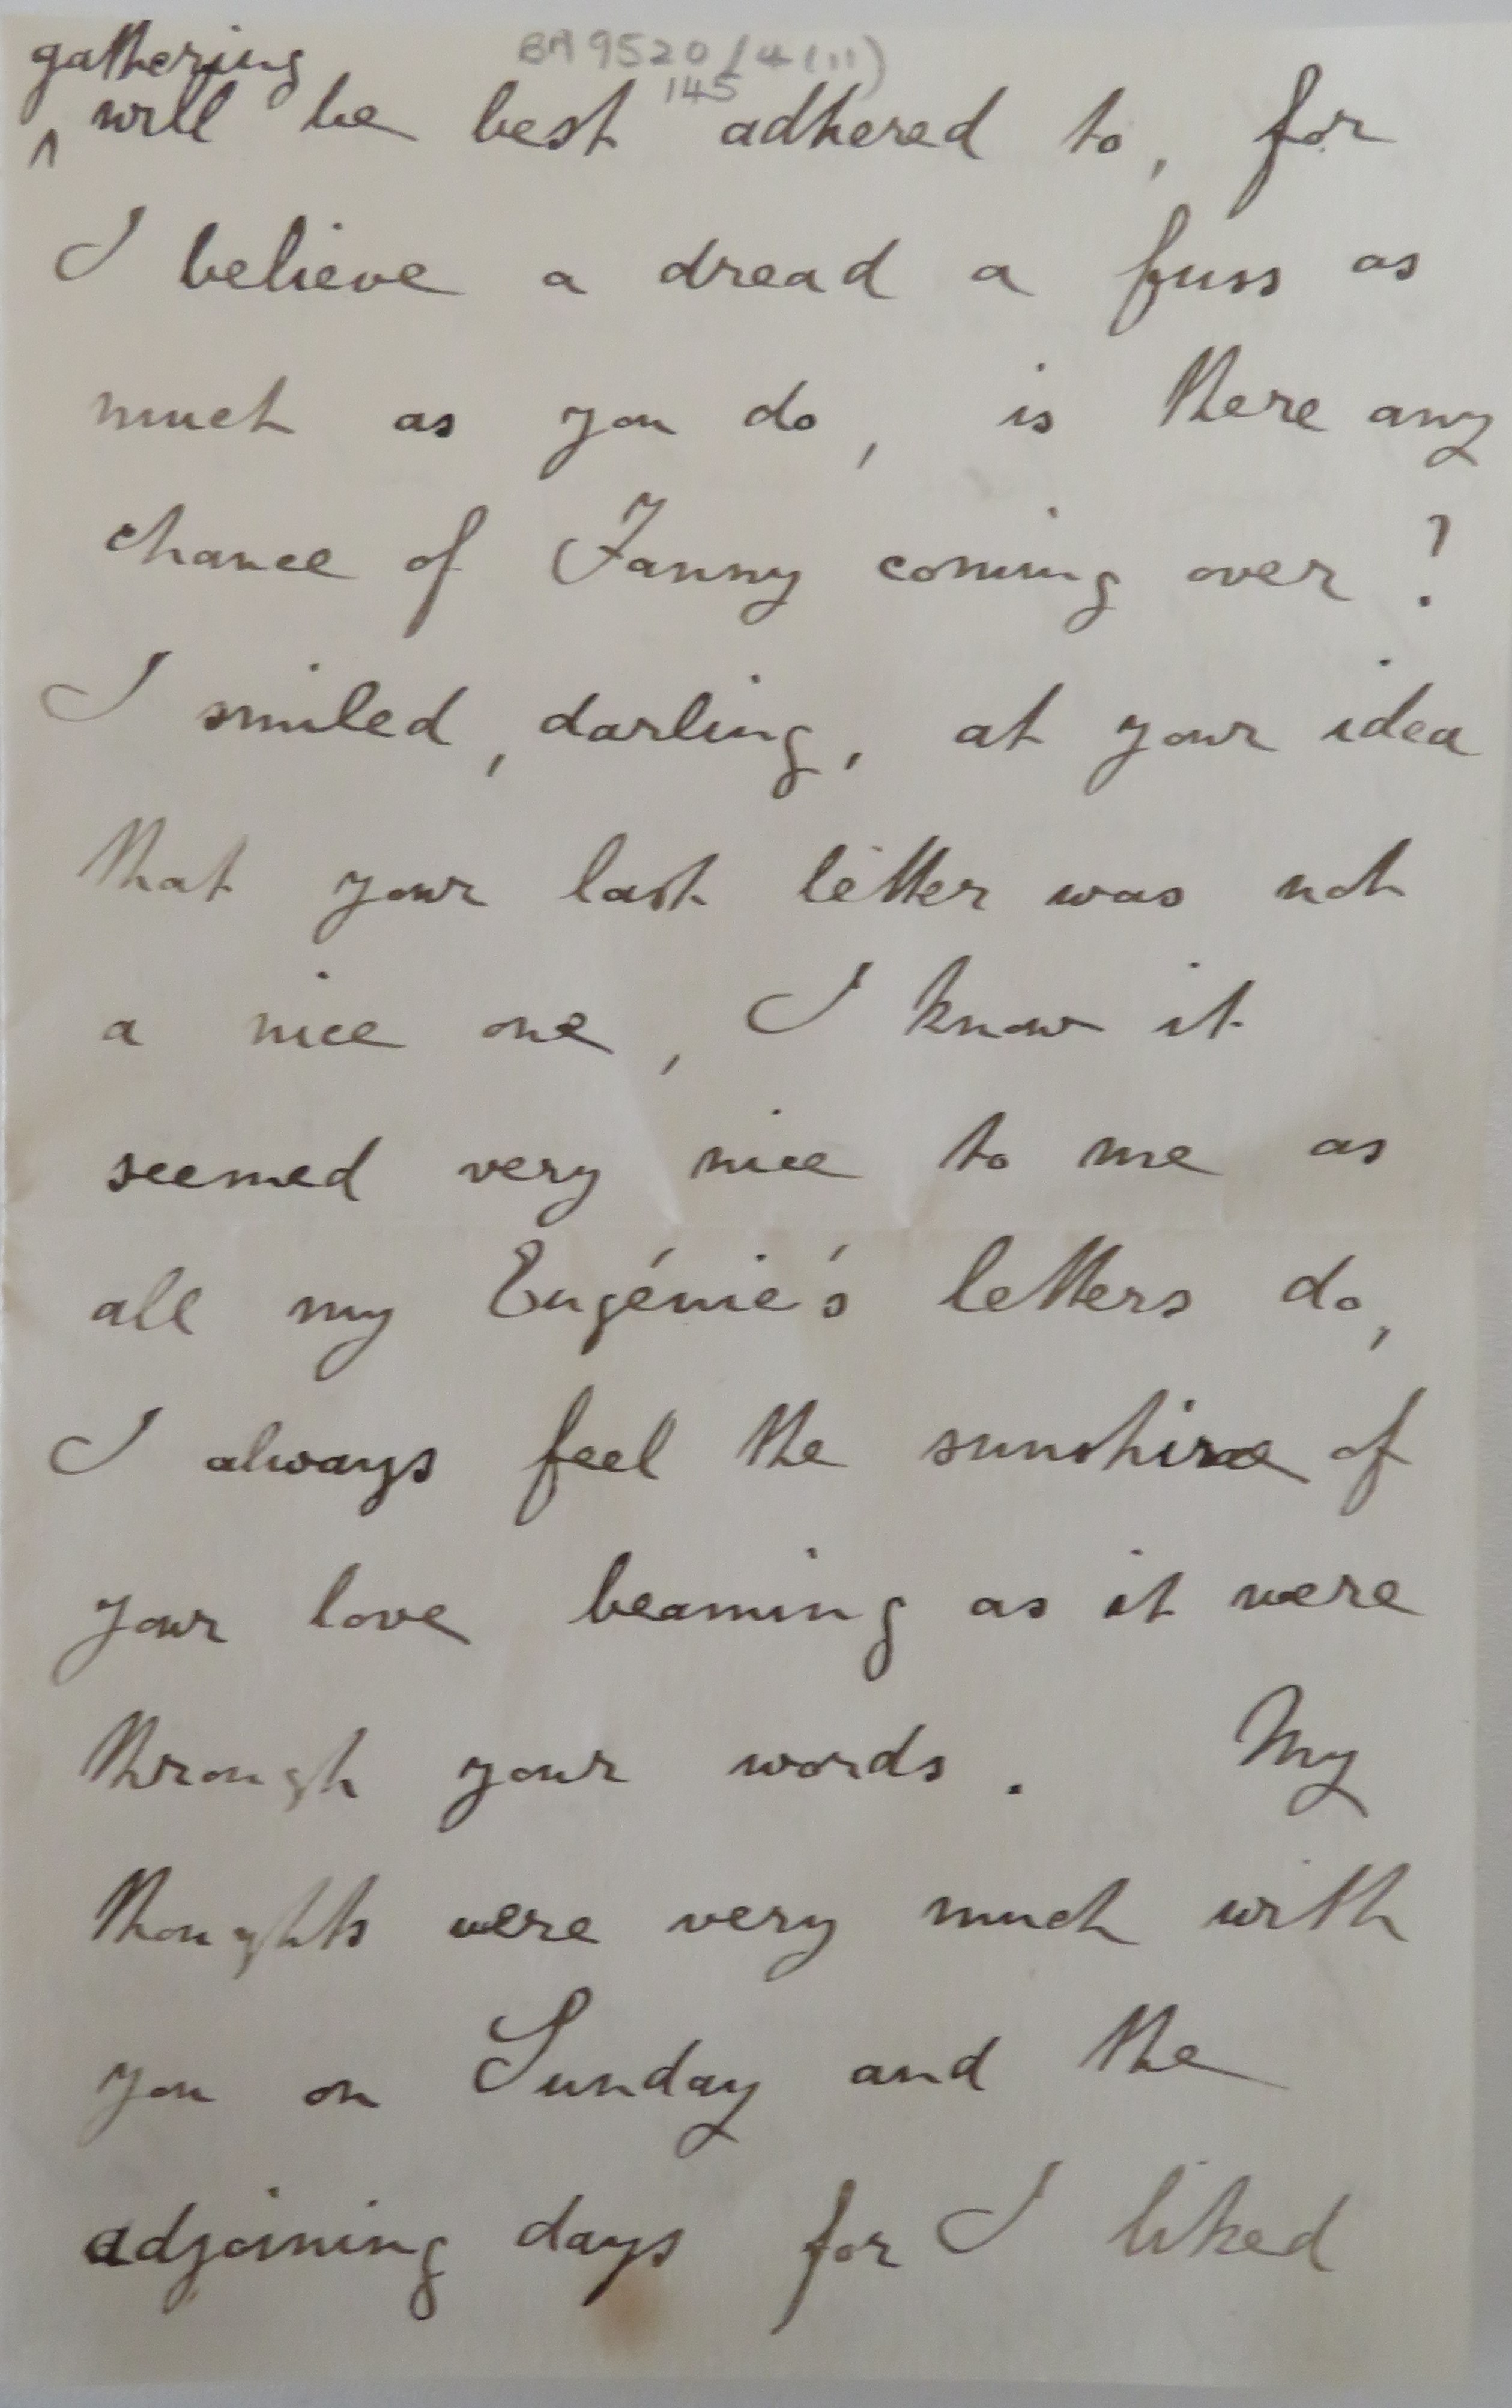 BA 9520/4(11)
145
gathering
^ will be best adhered to, for
I believe a dread a fuss as
much as you do, is there any
chance of Fanny coming over?
I smiled, darling, at your idea
that your last letter was not
a nice one, I know it
seemed very nice to me as
all my Eugénie's letters do,
I always feel the sunshine of
your love beaming as it were
through your words. My
thoughts were very much with
you on Sunday and the
adjoining days for I liked